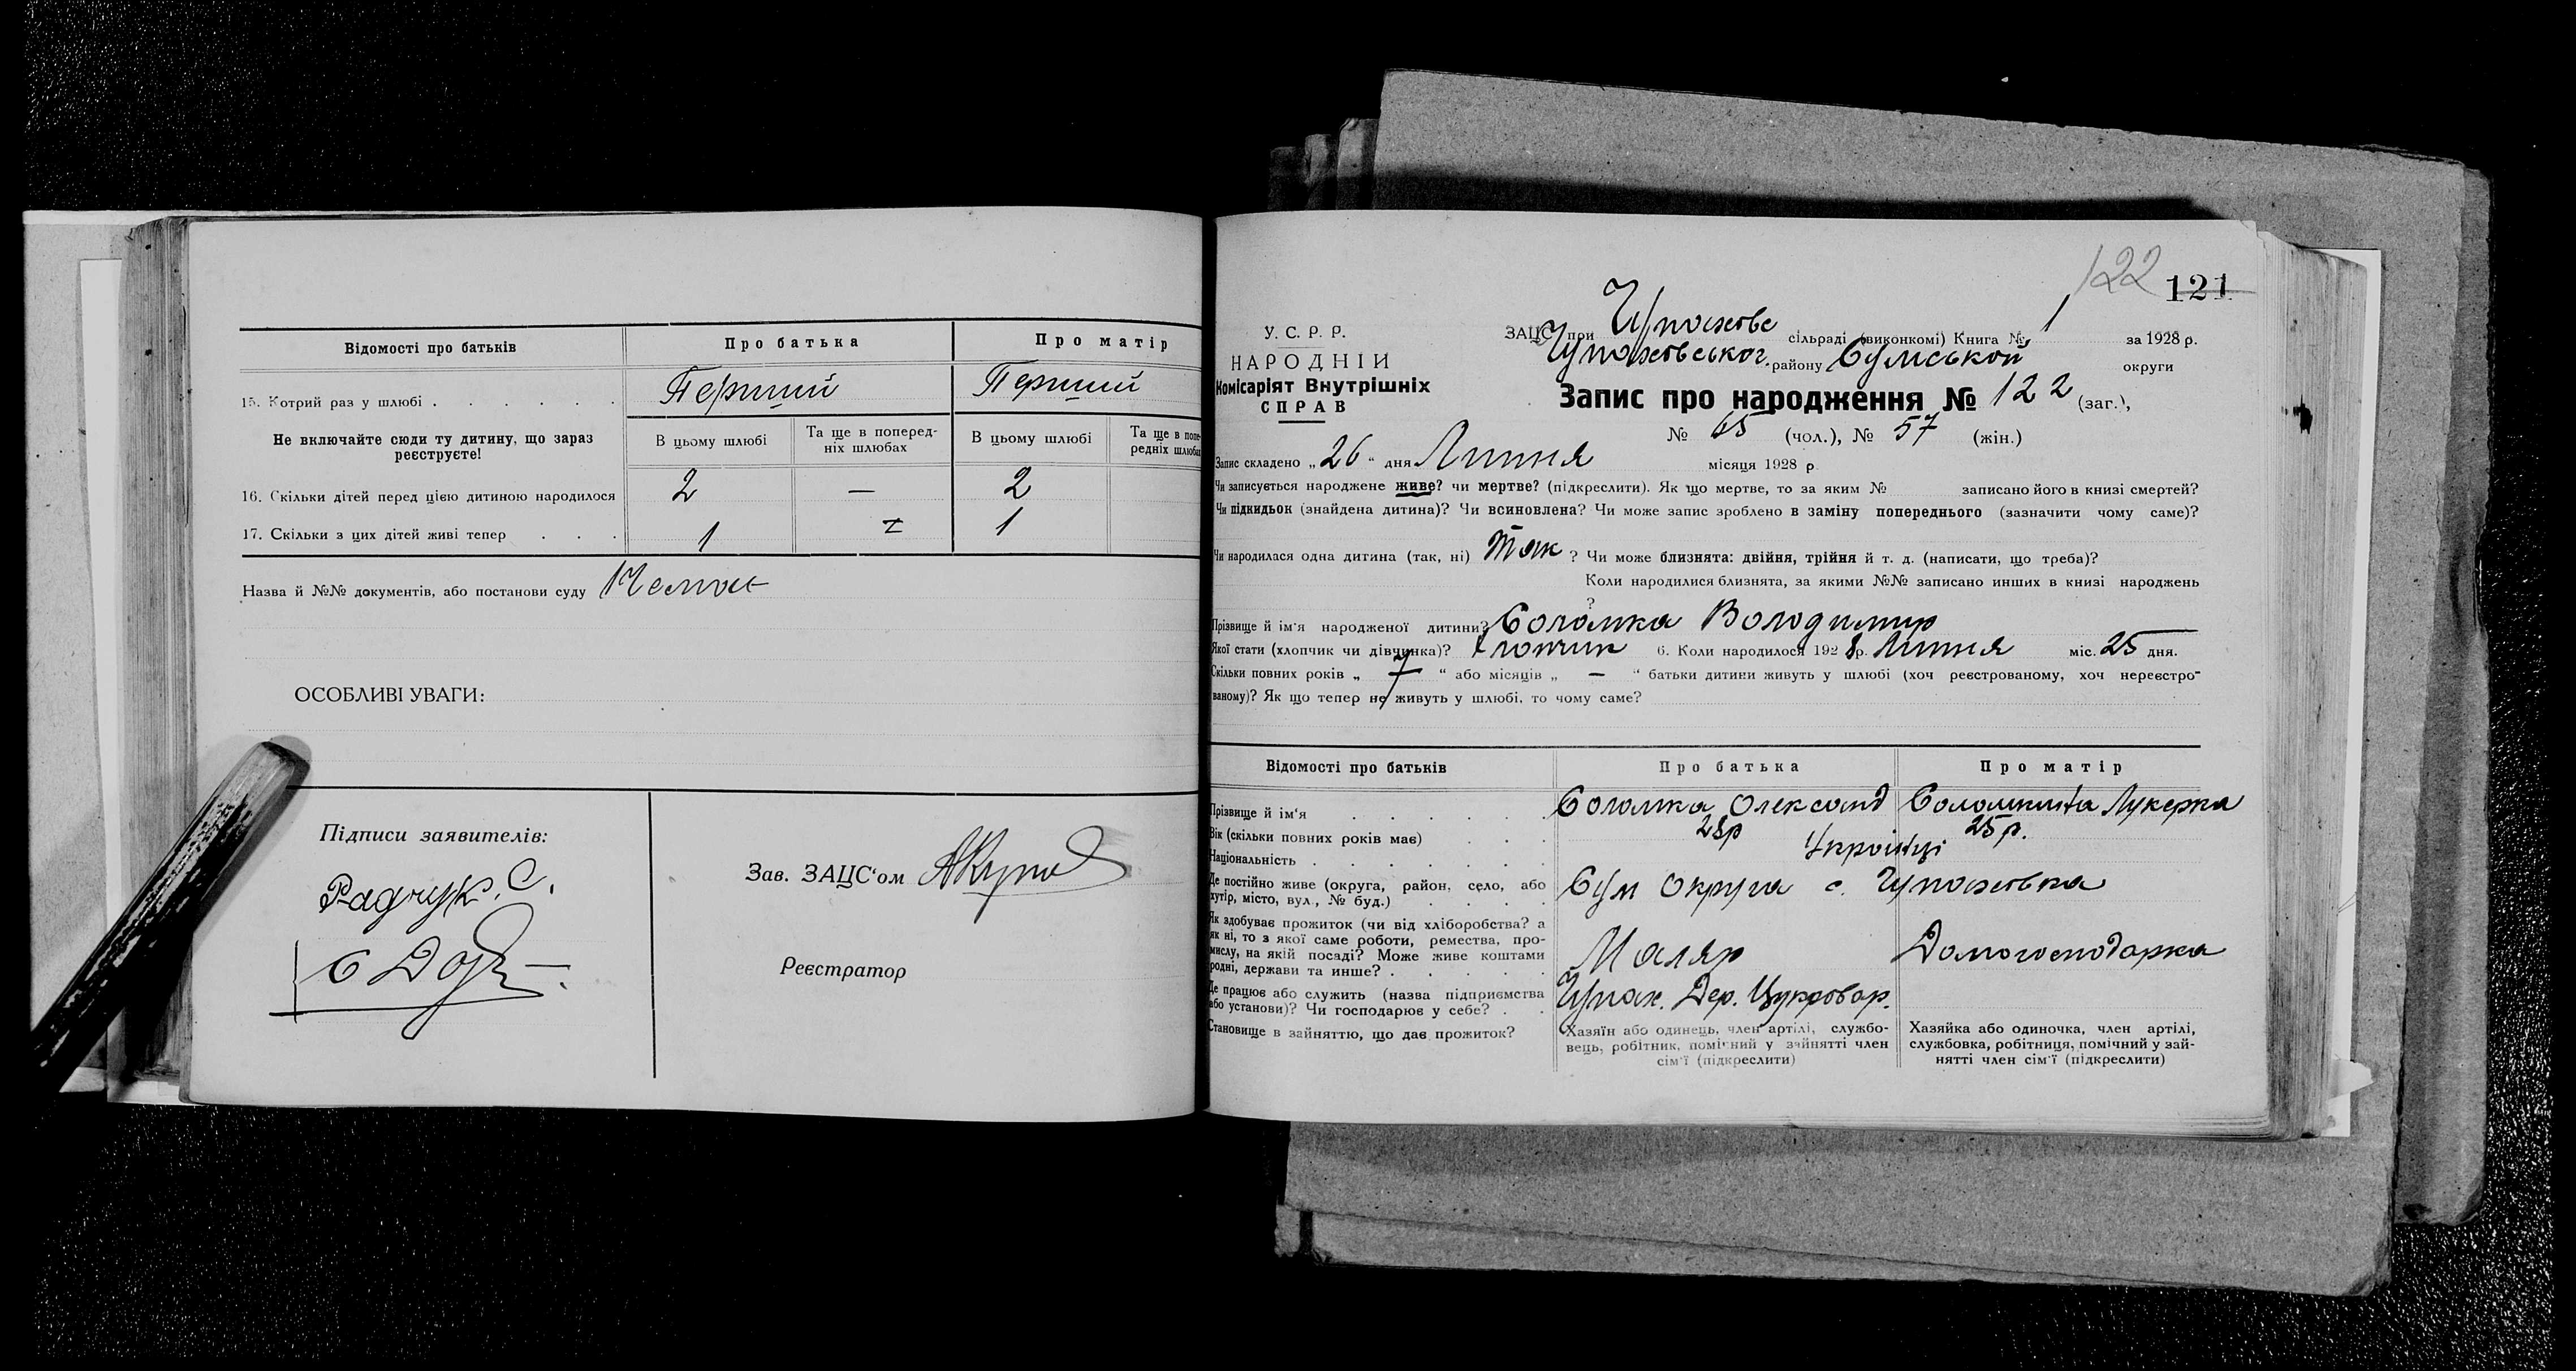 Відомості про батьків
Про батька
Про матір
15. Котрий раз у шлюбі
Перший
Перший
Не включайте сюди ту дитину, що зараз реєструєте!
В цьому шлюбі
Та ще в поперед-
ніх шлюбах
В цьому шлюбі
Та ще в попе-
редніх шлюбах
16. Скільки дітей перед цією дитиною народилося
2
—
2
17. Скільки з цих дітей живі тепер
1
1
Назва й №№ документів, або постанови суду Немає
ОСОБЛИВІ УВАГИ:
Підписи заявителів:
Радчук. С.
Зав. ЗАЦС'ом
Реєстратор
122
121
У. С. Р. Р.
НАРОДНІЙ
Комісаріят Внутрішніх
СПРАВ
ЗАЦС при Чупахівс сільраді (виконкомі) Книга № 1 за 1928 р.
Чупахівськог. району Сумської округи
Запис про народження № 122 (заг.),
№ 65 (чол.), № 57 (жін.)
Запис складено „26“ дня Липня місяця 1928 р
Чи записується народжене живе? чи мертве? (підкреслити). Як що мертве, то за яким № записано його в книзі смертей?
Чи підкидьок (знайдена дитина)? Чи всиновлена? Чи може запис зроблено в заміну попереднього (зазначити чому саме)?
Чи народилася одна дитина (так, ні) Так ? Чи може близнята: двійня, трійня й т. д. (написати, що треба)?
Коли народилися близнята, за якими №№ записано инших в книзі народжень
?
Прізвище й ім'я народженої дитини? Соломка Володимир
Якої стати (хлопчик чи дівчинка)? Хлопчик 6. Коли народилося 1928 р. Липня міс. 25 дня.
Скільки повних років „ 7 “ або місяців „ — “ батьки дитини живуть у шлюбі (хоч реєстрованому, хоч нереєстро-
ваному)? Як що тепер не живуть у шлюбі, то чому саме?
Відомості про батьків
Про батька
Про матір
Прізвище й ім'я
Соломка Олександ
Соломкина Лукерка
Вік (скільки повних років має)
28р
25р.
Національність
Українці
Де постійно живе (округа, район, село, або
хутір, місто, вул., № буд.)
Сум округа с. Чупахівка
Як здобуває прожиток (чи від хліборобства? а
як ні, то з якої саме роботи, ремества, про-
мислу, на якій посаді? Може живе коштами
родні, держави та инше?
Маляр
Домогосподарка
Де працює або служить (назва підприємства
або установи)? Чи господарює у себе?
Чупах. Дер. Цукровар.
Становище в зайняттю, що дає прожиток?
Хазяїн або одинець, член артілі, службо-
вець, робітник, помічний у зайнятті член
сім'ї (підкреслити)
Хазяйка або одиночка, член артілі,
службовка, робітниця, помічний у зай-
нятті член сім'ї (підкреслити)